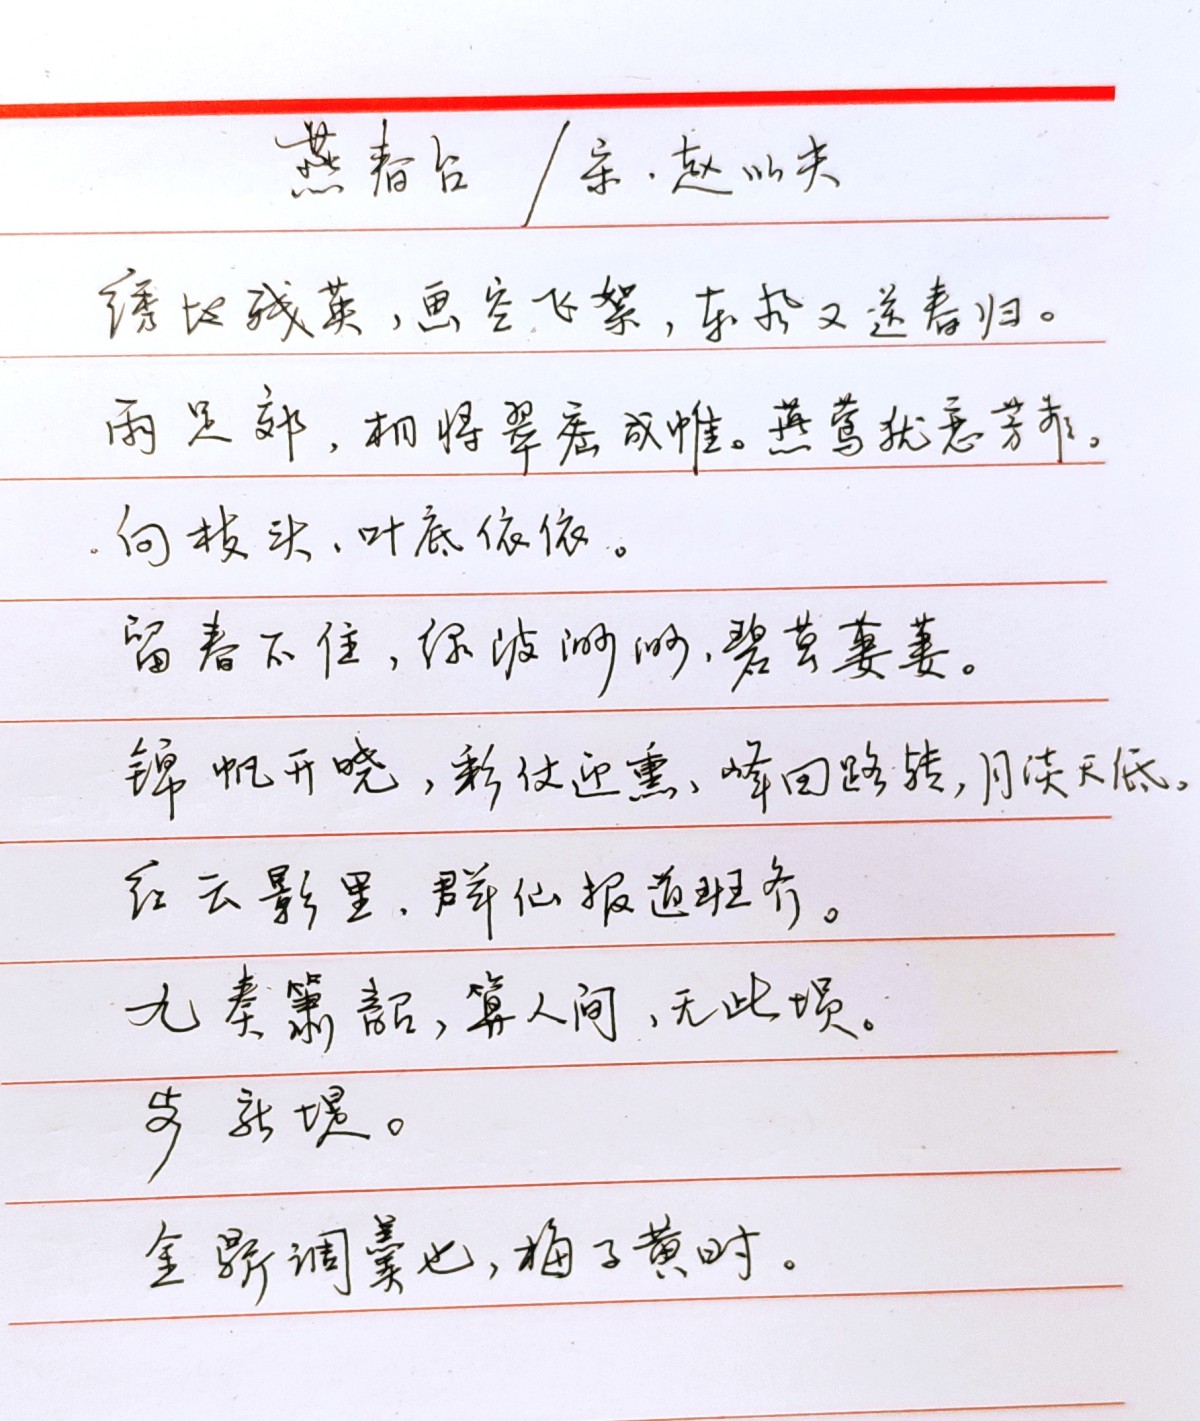 燕春台/宋·赵以夫
绣地残英，画空飞絮，东风又送春归。
雨足郊，相将翠密成帷。燕莺犹恋芳菲。
向枝头、叶底依依。
留春不住，绿波渺渺、碧芸萋萋。
锦帆开晓，彩仗迎熏、峰回路转，月淡天低。
红云影里、群仙报道班齐。
九奏箫韶，算人间，无此埙。
步新堤。
金鼎调羹也，梅子黄时。